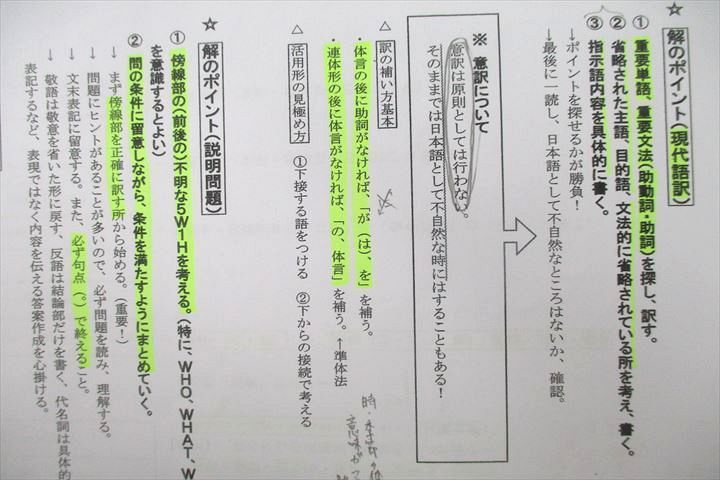 ☆ 解のポイント(現代語訳)
① 重要単語、重要文法(助動詞・助詞)を探し、訳す。
② 省略された主語、目的語、文法的に省略されている所を考え、書く。
③ 指示語内容を具体的に書く。
→ポイントを探せるかが勝負!
→最後に一読し、日本語として不自然なところはないか、確認。
※ 意訳について
意訳は原則としては行わない。
そのままでは日本語として不自然な時にはすることもある!
△ 訳の補い方基本
・体言の後に助詞がなければ、「が(は)、を」を補う。
・連体形の後に体言がなければ、「の、体言」を補う。↑準体法
△ 活用形の見極め方 ①下接する語をつける ②下からの接続で考える
☆ 解のポイント(説明問題)
① 傍線部の(前後の)不明な5W1Hを考える。(特に、WHO、WHAT、W
を意識するとよい)
② 問の条件に留意しながら、条件を満たすようにまとめていく。
→ まず傍線部を正確に訳す所から始める。(重要!)
→ 問題にヒントがあることが多いので、必ず問題を読み、理解する。
→ 文末表記に留意する。また、必ず句点(。)で終えること。
→ 敬語は敬意を省いた形に戻す、反語は結論部だけを書く、代名詞は具体的
表記するなど、表現ではなく内容を伝える答案作成を心掛ける。